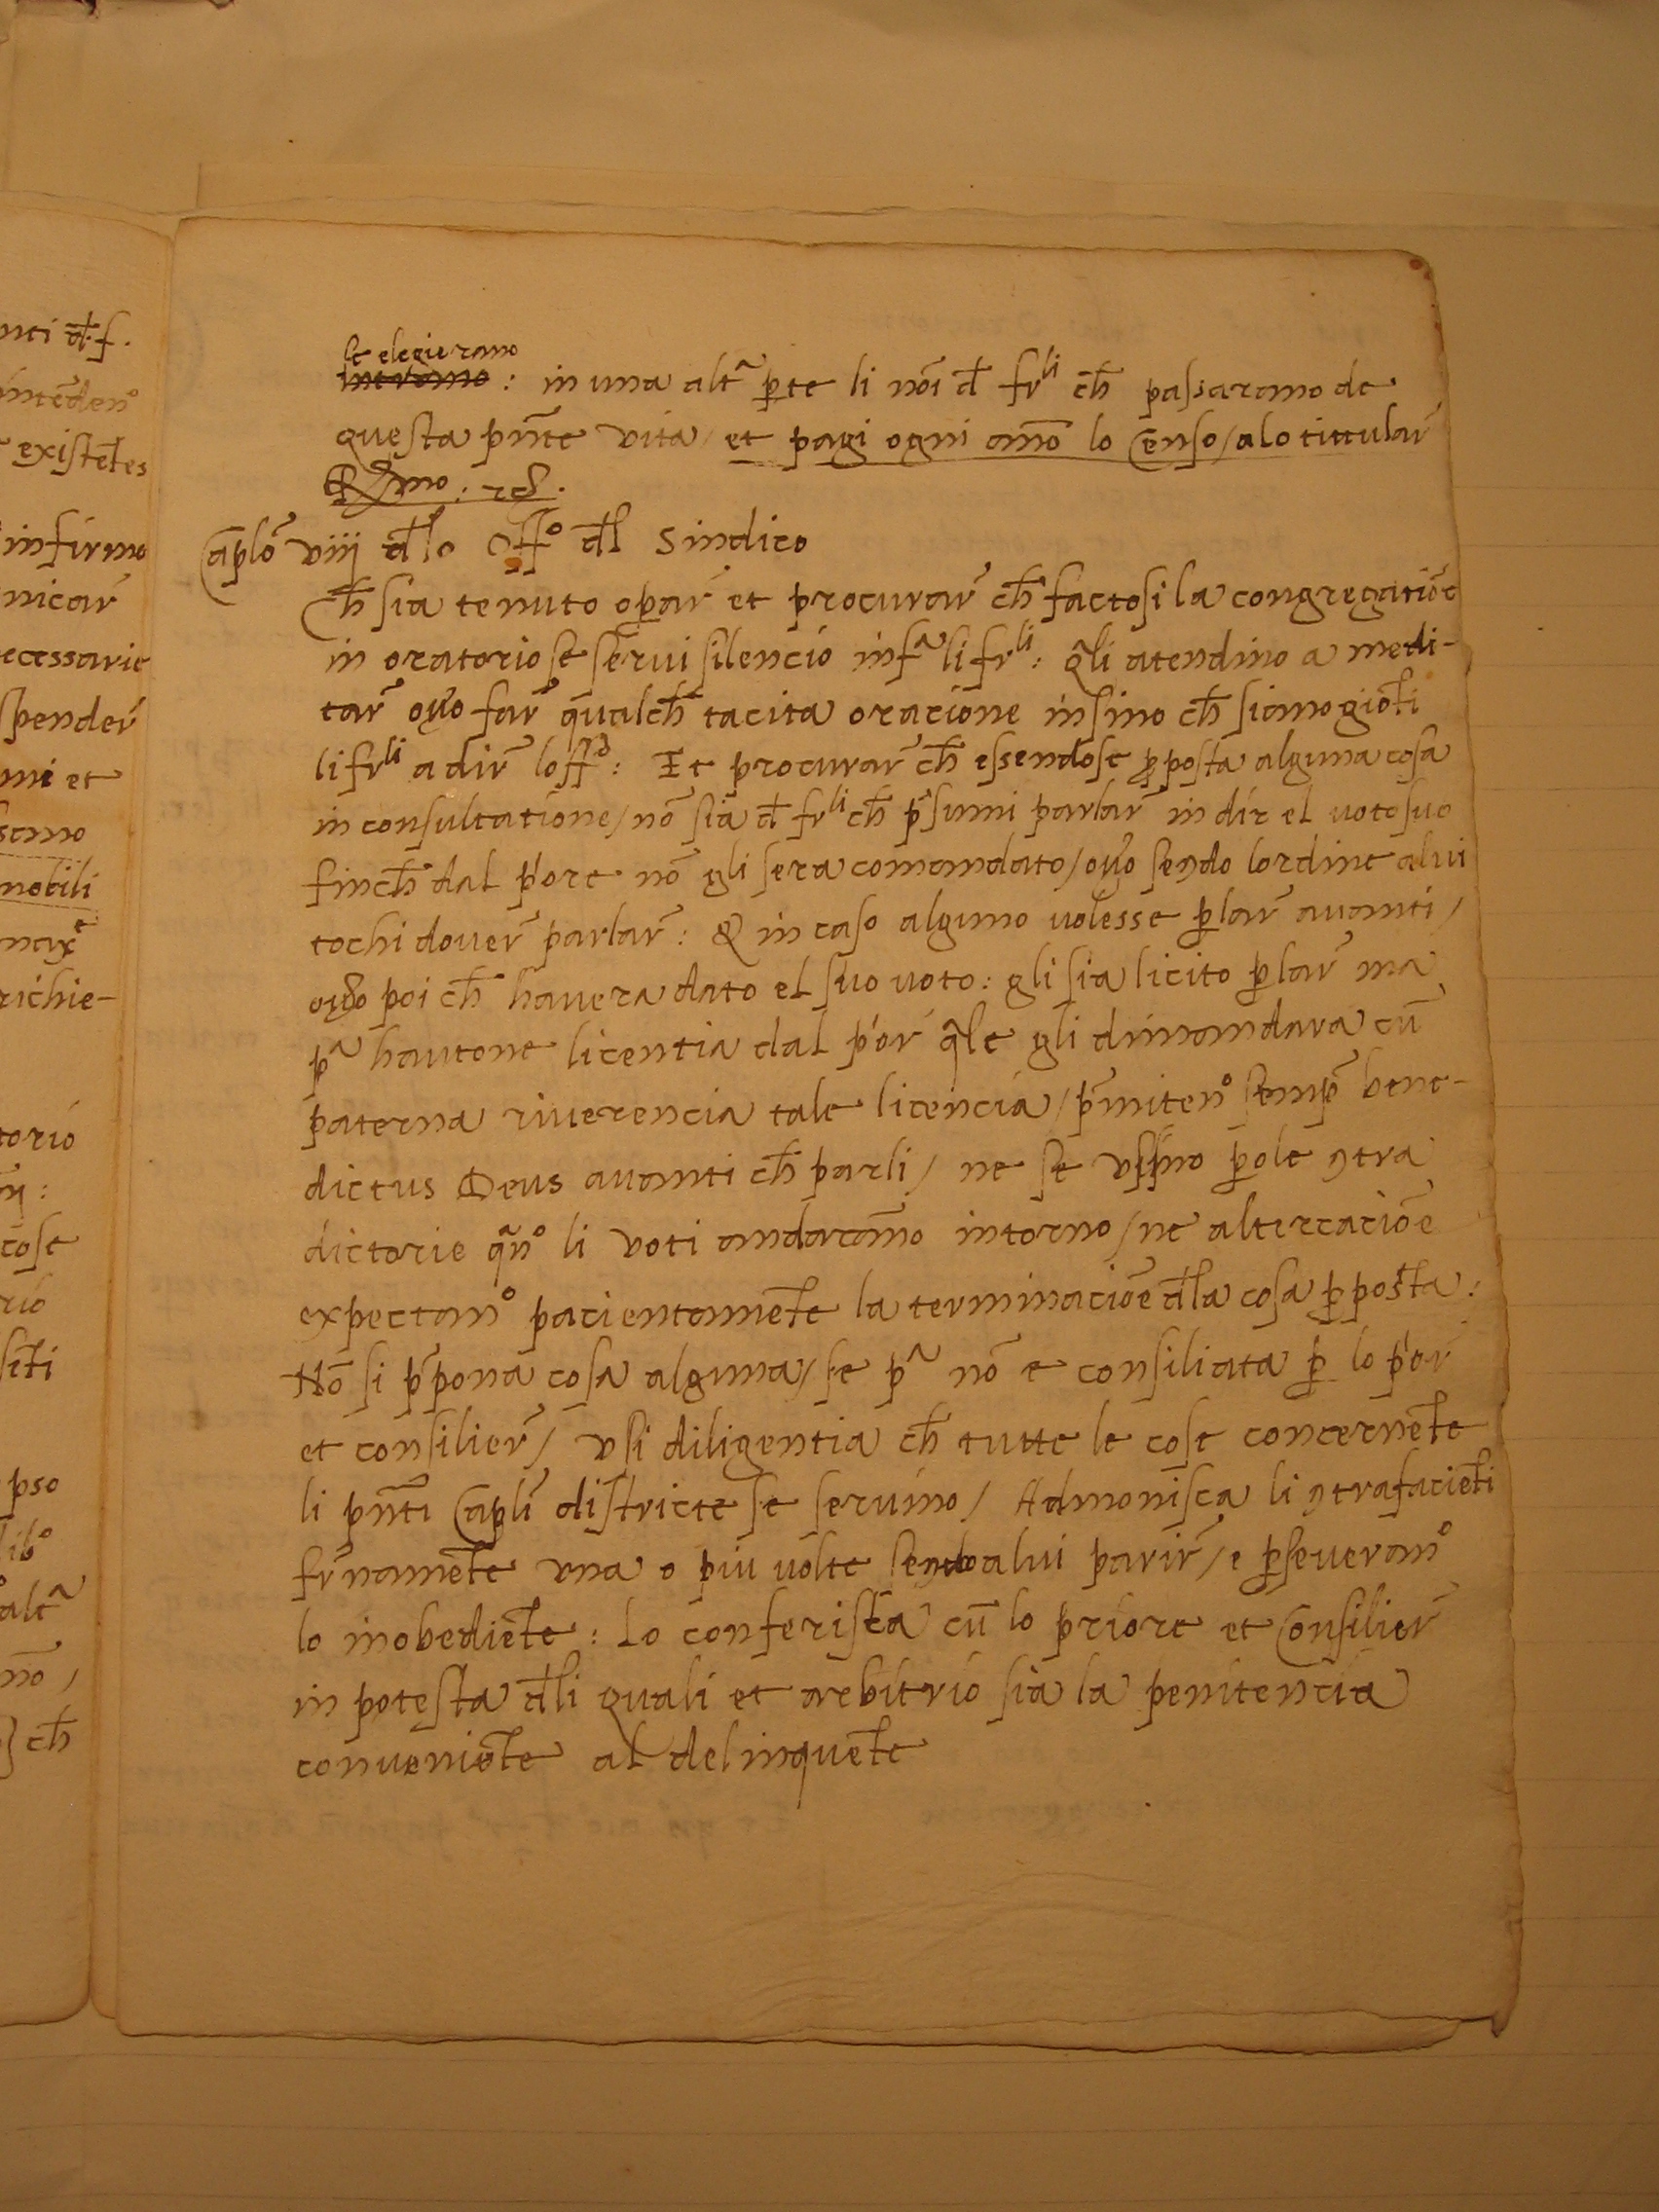 se elegierano
intrano : in una altᵃ ꝑte li nōi đ frˡⁱ cħ passarano de
questa pn̄te vita / et pagi ogni anō lo Censo / alo tittular̄
Caplō viij đlo Offᵒ đl Sindico
Cħ sia tenuto oꝑar̄ et procurar̄ cħ factosi la congregatiōe
in oratorio se servi silencio infᵃ li frˡⁱ : q̄li atendino a medi-
tar̄ ov̄o far̄ qualcħ tacita oracione insino cħ siano giōti
li frˡⁱ a dir̄ loffᵒ : Et procurar̄ cħ essendose ꝓposta alguna cosa
in consultatione / nō sia đ frˡⁱ cħ p̄sumi parlar̄ in dir el voto suo
fincħ dal p'ore nō gli sera comandato / ov̄o sendo lordine a lui
tochi dover̄ parlar̄ : & in caso alguno volesse ꝑlar̄ avanti /
ov̄o poi cħ havera dato el suo voto : gli sia licito ꝑlar̄ ma
pᵃ havtone licentia dal p'or̄ q̄le gli dimandara cū
paterna riverencia tale licencia / p̄mitenᵒ semp̄ bene-
dictus Deus avanti cħ parli / ne se ussino ꝑole ꝯtra
dictorie qn̄ᵒ li voti andarāno intorno / ne altercaciōe
expectanᵒ pacientamēte la terminaciōe đla cosa ꝓposta :
Nō si p̄pona cosa alguna / se pᵃ nō e consiliata ꝑ lo p'or̄
et consilier̄ / Usi diligentia cħ tutte le cose concernēte
li pn̄ti Caplī districte se servino / Admonisca li ꝯtrafaciēti
fr̄namēte una o piu volte sendo a lui parir̄ / e ꝑseveranᵒ
lo inobediēte : Lo conferisca cū lo priore et Consilier̄
in potesta đli quali et arbitrio sia la penitencia
conveniēte al delinquēte